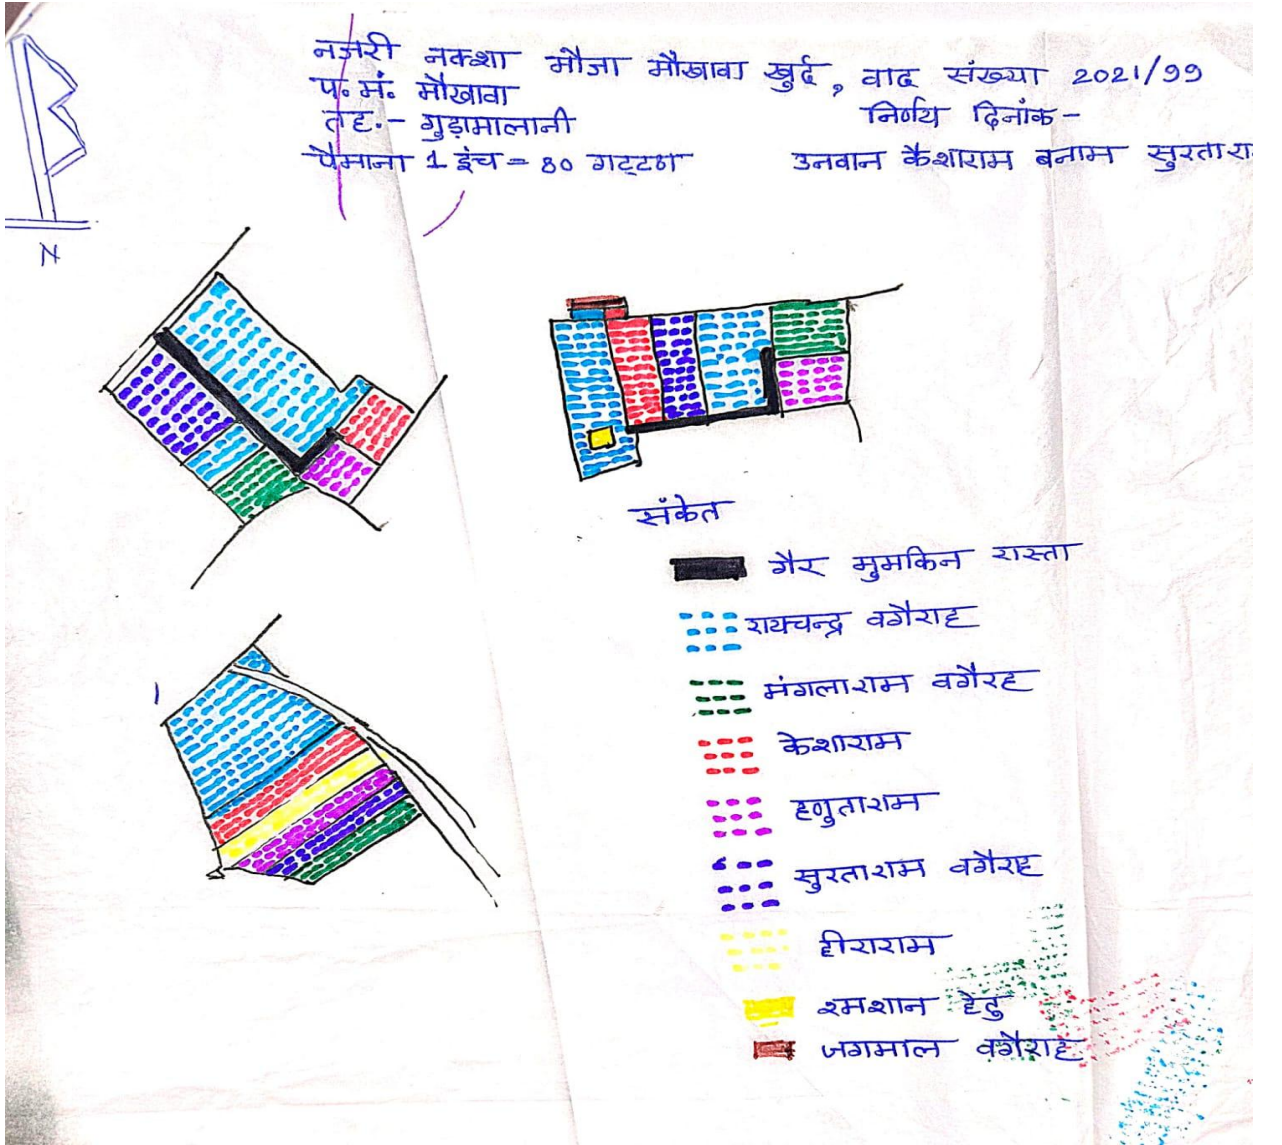 नजरी नक्शा मौजा मौखावा खुर्द, वाद संख्या 2021/99
प. मं. मौखावा निर्णय दिनांक -
तह. - गुड़ामालानी
पैमाना 1 इंच = 80 गट्टठा उनवान केशाराम बनाम सुरतारा
N
संकेत
गैर मुमकिन रास्ता
रायचन्द्र वगैराह
मंगलाराम वगैरह
केशाराम
हणुताराम
सुरताराम वगैराह
हीराराम
श्मशान हेतु
जगमाल वगैराह